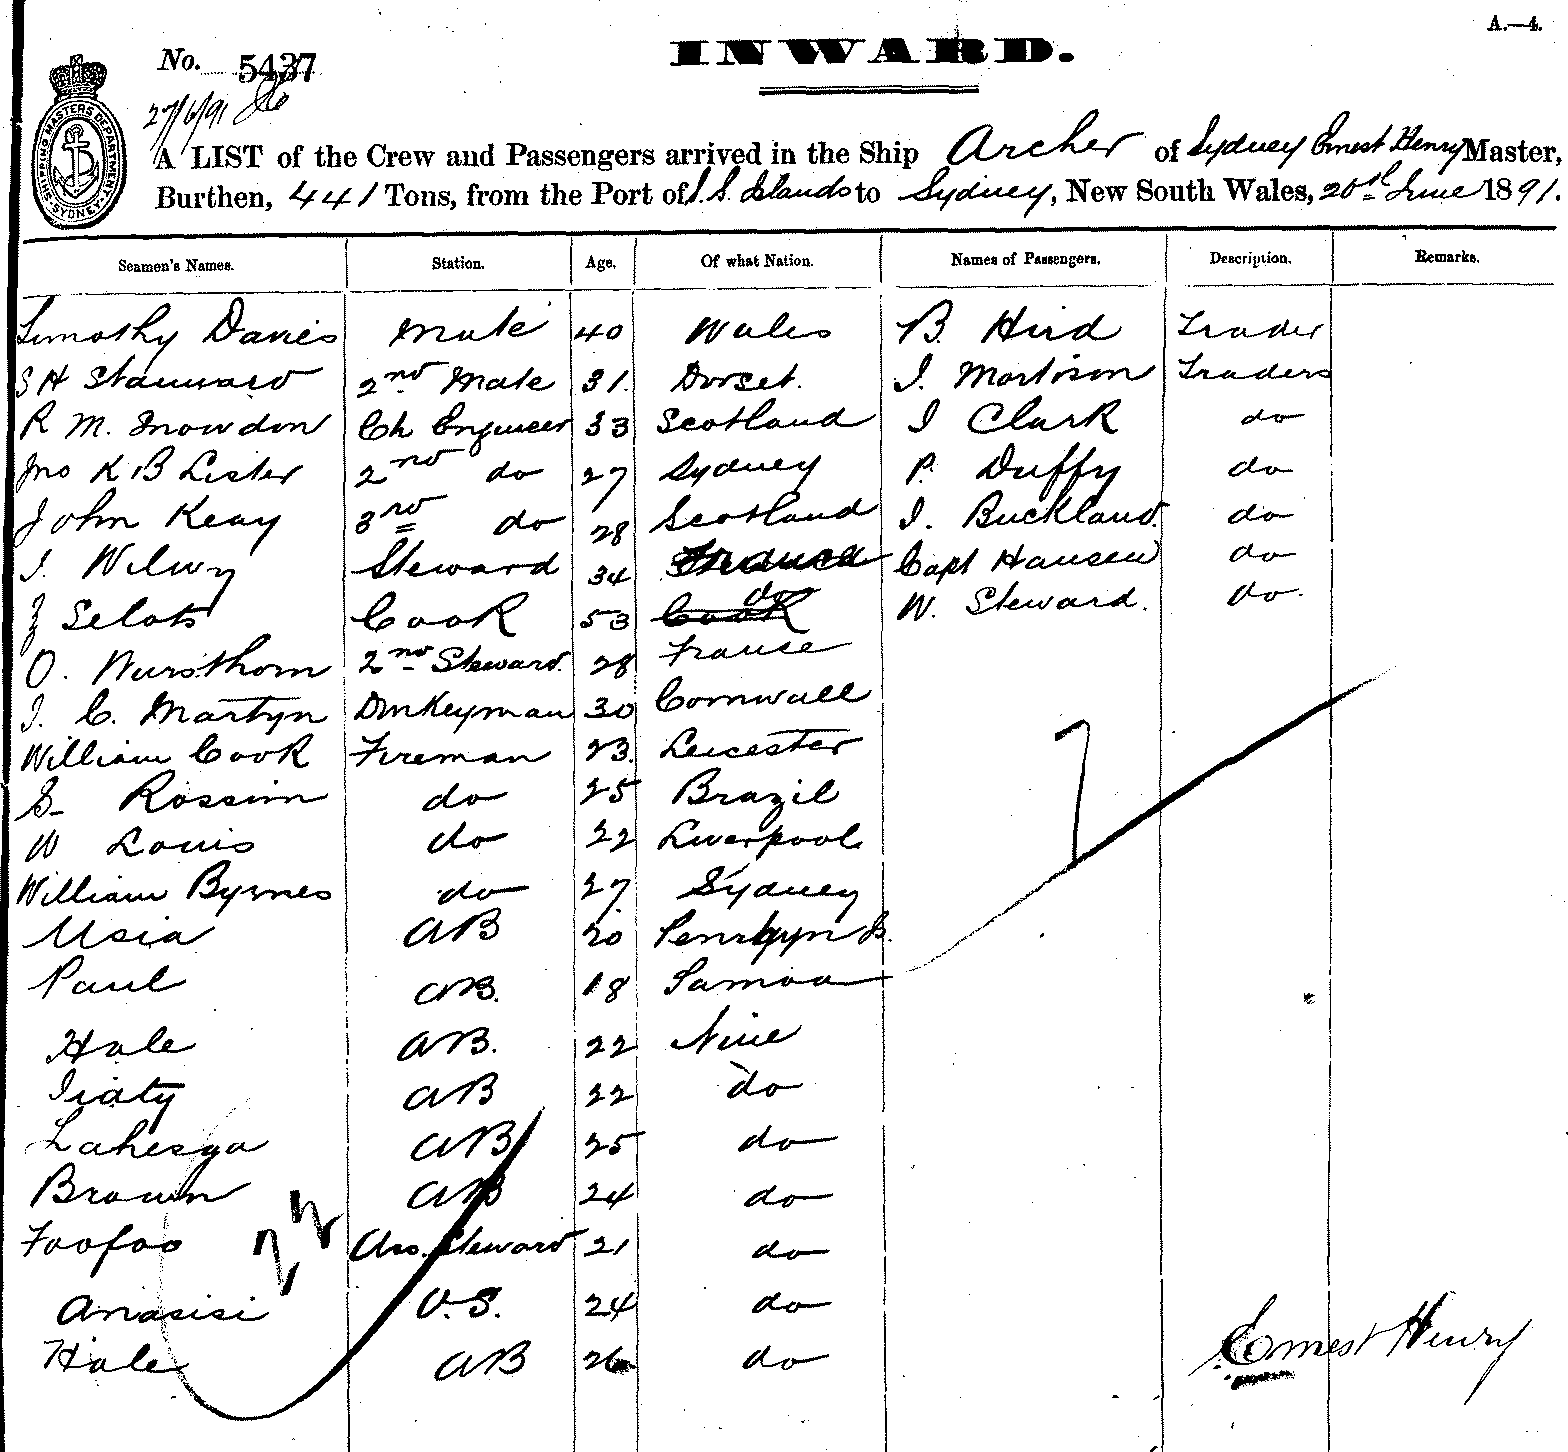 A.—4.
INWARD.
No. 5437
27/6/91
SHIPPING MASTERS DEPARTMENT SYDNEY
A LIST of the Crew and Passengers arrived in the Ship Archer of Sydney Ernest Henry Master,
Burthen, 441 Tons, from the Port of S. S. Islands to Sydney, New South Wales, 20th June 1891.
Seamen's Names. Station. Age. Of what Nation. Names of Passengers. Description. Remarks.
Timothy Davies Mate 40 Wales B. Hird Trader
S H Stanward 2nd Mate 31. Dorset. J. Mortison Traders
R M. Snowdon Ch Engineer 33 Scotland J Clark do
Jno K B Lister 2nd do 27 Sydney P. Duffy do
John Keay 3rd do 28 Scotland J. Buckland. do
J. Steward 34 Capt Hansen do
Selots Cook 53 Cook do W. Steward. do.
O. Wursthorn 2nd Steward. 28 France
J. C. Martyn Donkeyman 30 Cornwall
William Cook Fireman 23. Leicester
S. Rossim do 25 Brazil
W Louis do 22 Liverpool
William Byrnes do 27. Sydney
Usia AB 20 Penrhyn Is.
Paul AB. 18 Samoa
7
Hale AB. 22 Niue
Tiaty AB 22 do
Lahesga AB 25 do
Brown AB 24 do
22
Foofoo Ass. Steward 21 do
Anasisi O.S. 24 do
Hale AB 26 do
Ernest Henry